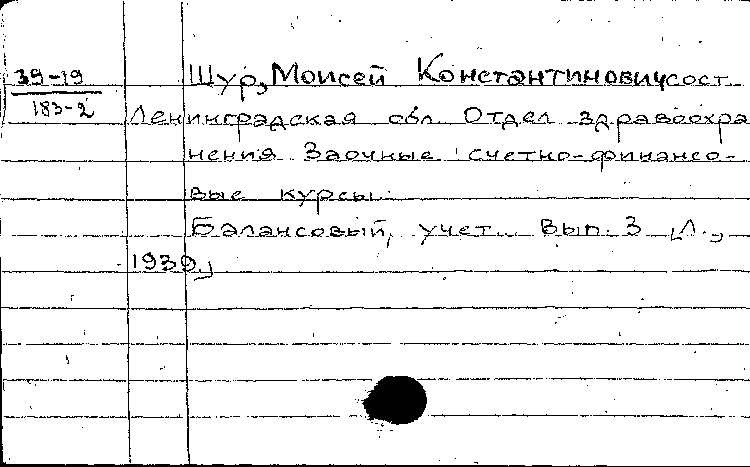 39-19
183-2
Шур, Моисей Константинович сост.
Ленинградская обл. Отдел здравоохра
нения Заочные счетно-финансо-
вые курсы.
Балансовый, учет. Вып. 3 Л.,
1939.,